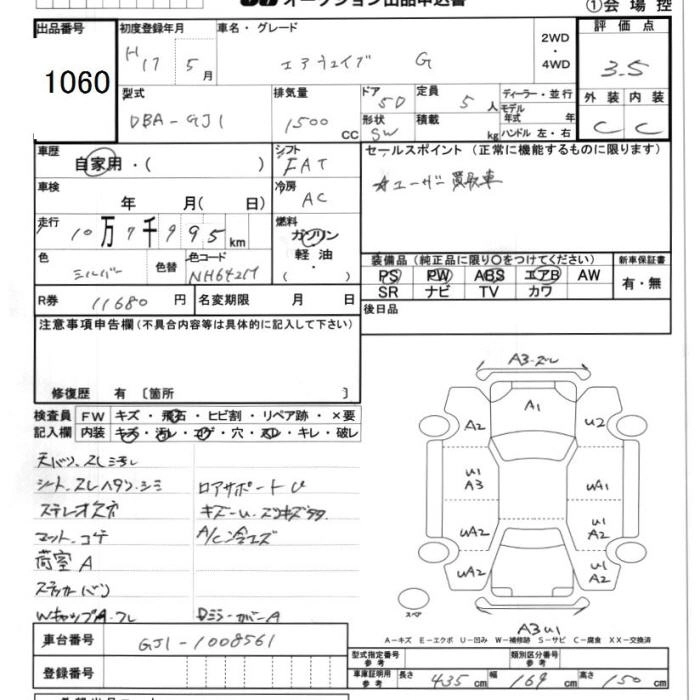 オークション出品申込書
①会場控
出品番号
1060
初度登録年月
H 17 5月
車名・グレード
エアウェイブ G
2WD・4WD
評価点
3.5
外装 内装
C C
型式
DBA-GJ1
排気量
1500 cc
ドア 5D
形状 SW
定員 5人
積載 kg
ディーラー・並行
モデル年式 年
ハンドル 左・右
車歴
自家用・( )
シフト
FAT
セールスポイント(正常に機能するものに限ります)
☆ユーザー買取車
車検
年 月( 日)
冷房
AC
走行
10万7千995km
燃料
ガソリン
軽油
( ・ )
色
シルバー
色替
色コード
NH642M
装備品(純正品に限り〇をつけてください)
PS PW ABS エアB AW
SR ナビ TV カワ
新車保証書
有・無
R券 11680円
名変期限 月 日
後日品
注意事項申告欄(不具合内容等は具体的に記入して下さい)
修復歴 有〔箇所 〕
検査員記入欄
FW キズ・飛石・ヒビ割・リペア跡・×要
内装 キズ・汚レ・コゲ・穴・スレ・キレ・破レ
天バリ、スレ汚レ
シート、スレヘタン、シミ
ロアサポートU
マット、コゲ
A/C冷エズ
荷室A
車台番号
GJ1-1008561
登録番号
A3
A1
A2
U2
U1
A3
UA1
UA2
U1
A2
UA2
U1
A2
スペア
A3 U1
A-キズ E-エクボ U-凹み W-補修跡 S-サビ C-腐食 XX-交換済
型式指定番号
参考
類別区分番号
参考
車庫証明用
参考
長さ 435 cm 幅 169 cm 高さ 150 cm